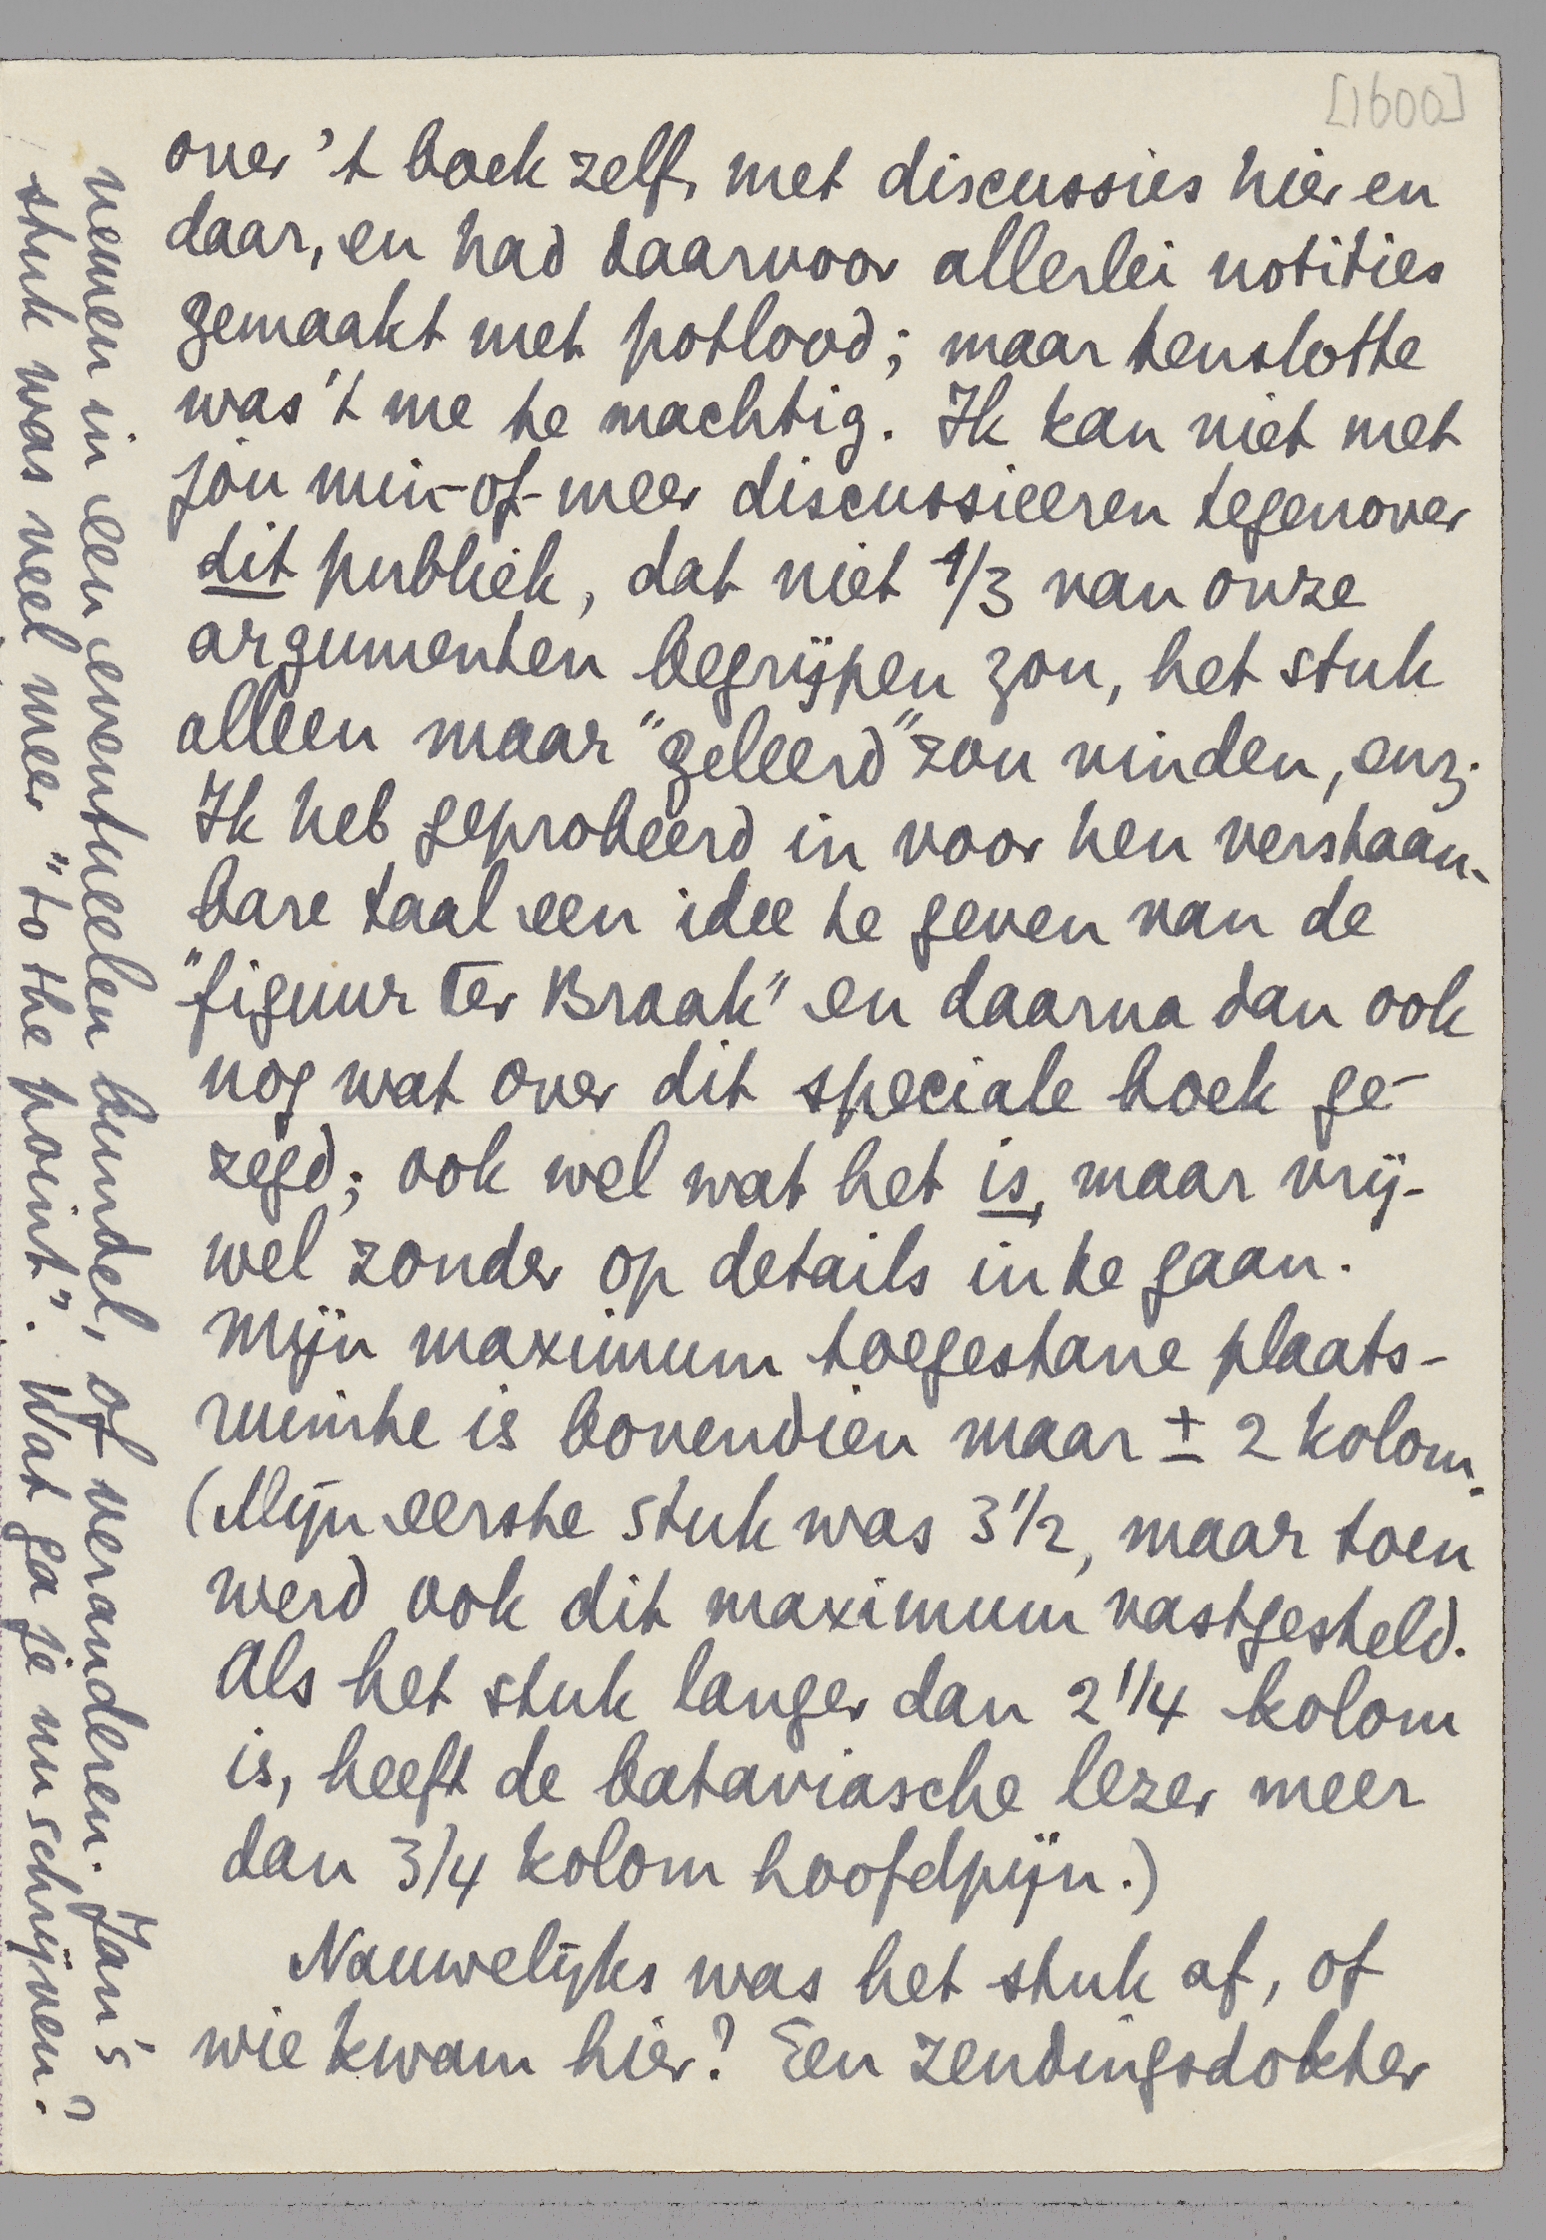 [1600]
over 't boek zelf, met discussies hier en
daar, en had daarvoor allerlei notities
gemaakt met potlood; maar tenslotte
was 't me te machtig. Ik kan niet met
jòu min-of-meer discussieeren tegenover
dit publiek, dat niet 1/3 van onze
argumenten begrijpen zou, het stuk
alleen maar "geleerd" zou vinden, enz.
Ik heb geprobeerd in voor hen verstaan-
bare taal een idee te geven van de
"figuur Ter Braak" en daarna dan ook
nog wat over dit speciale boek ge-
zegd; ook wel wat het is, maar vrij-
wel zonder op details in te gaan.
Mijn maximum toegestane plaats-
ruimte is bovendien maar ± 2 kolom.
(Mijn eerste stuk was 3 1/2, maar toen
werd ook dit maximum vastgesteld.
Als het stuk langer dan 2 1/4 kolom
is, heeft de bataviasche lezer meer
dan 3/4 kolom hoofdpijn.)
Nauwelijks was het stuk af, of
wie kwam hier? Een zendingsdokter
nemen in een eventueelen bundel, of veranderen. Jan's
stuk was veel meer "to the point". Wat ga je nu schrijven?